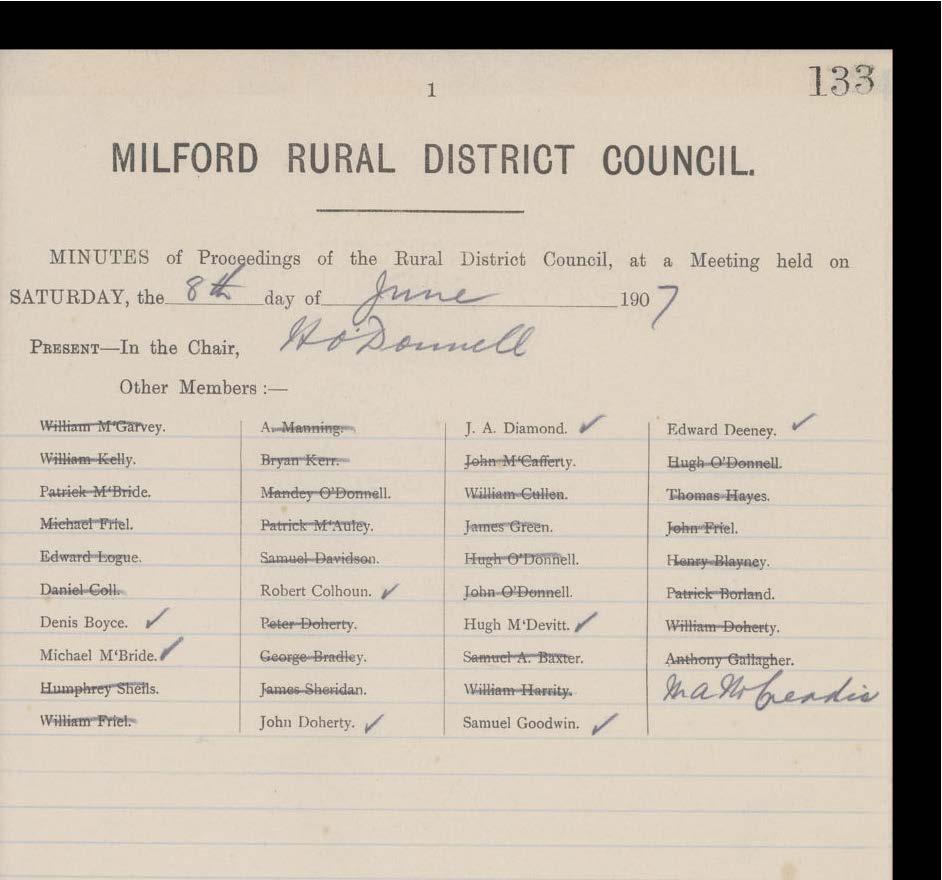 133
1
MILFORD RURAL DISTRICT COUNCIL.
MINUTES of Proceedings of the Rural District Council, at a Meeting held on
SATURDAY, the 8th day of June 1907
PRESENT—In the Chair, H O'Donnell
Other Members :—
William M‘Garvey. A. Manning. J. A. Diamond. ✓ Edward Deeney. ✓
William Kelly. Bryan Kerr. John M‘Cafferty. Hugh O‘Donnell.
Patrick M‘Bride. Mandey O‘Donnell. William Cullen. Thomas Hayes.
Michael Friel. Patrick M‘Auley. James Green. John Friel.
Edward Logue. Samuel Davidson. Hugh O‘Donnell. Henry Blayney.
Daniel Coll. Robert Colhoun. ✓ John O‘Donnell. Patrick Borland.
Denis Boyce. ✓ Peter Doherty. Hugh M‘Devitt. ✓ William Doherty.
Michael M‘Bride. ✓ George Bradley. Samuel A. Baxter. Anthony Gallagher.
Humphrey Sheils. James Sheridan. William Harrity.
William Friel. John Doherty. ✓ Samuel Goodwin. ✓